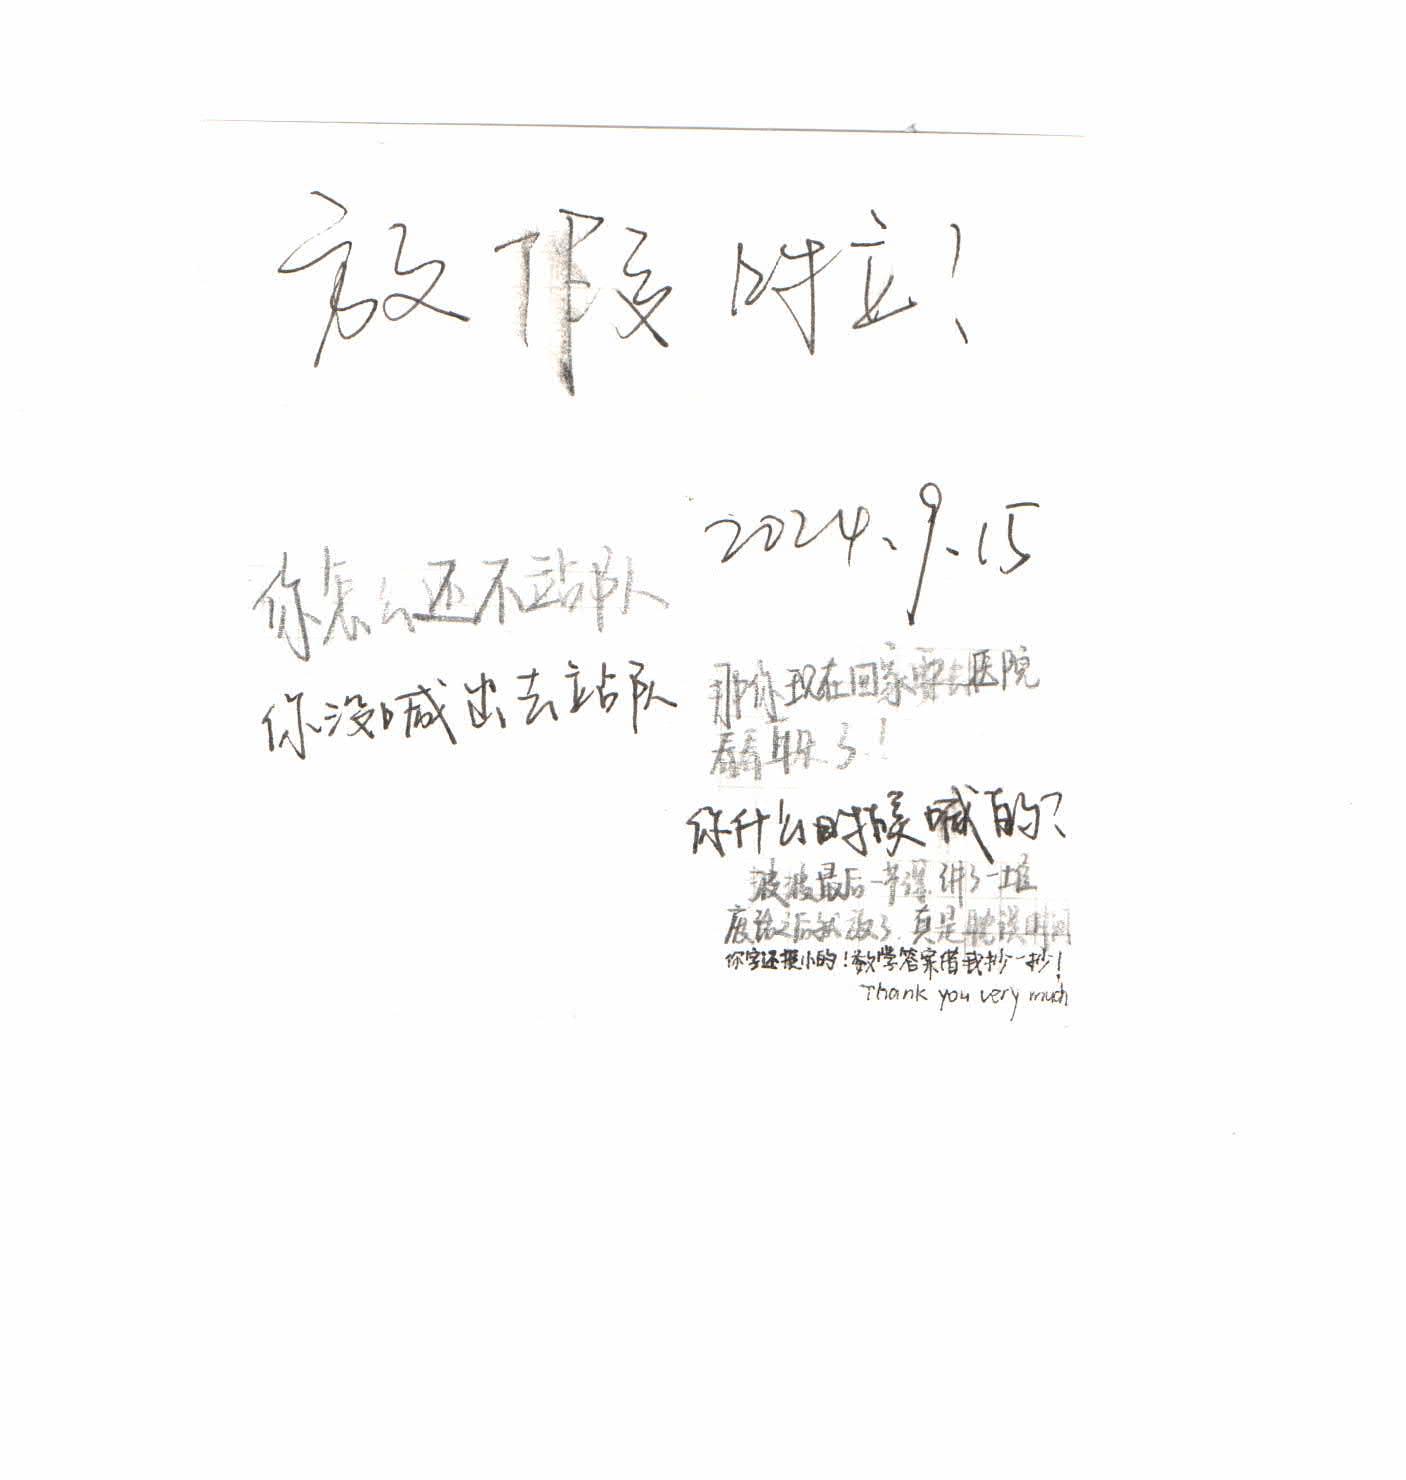 放假时立!
2024.9.15
你怎么还不站队
你没喊出去站队
那你现在回家要去医院
看看耳朵了!
你什么时候喊的?
波波最后一节课讲了一堆
废话之后就放了.真是耽误时间
你字还挺小的!数学答案借我抄一抄!
Thank you very much